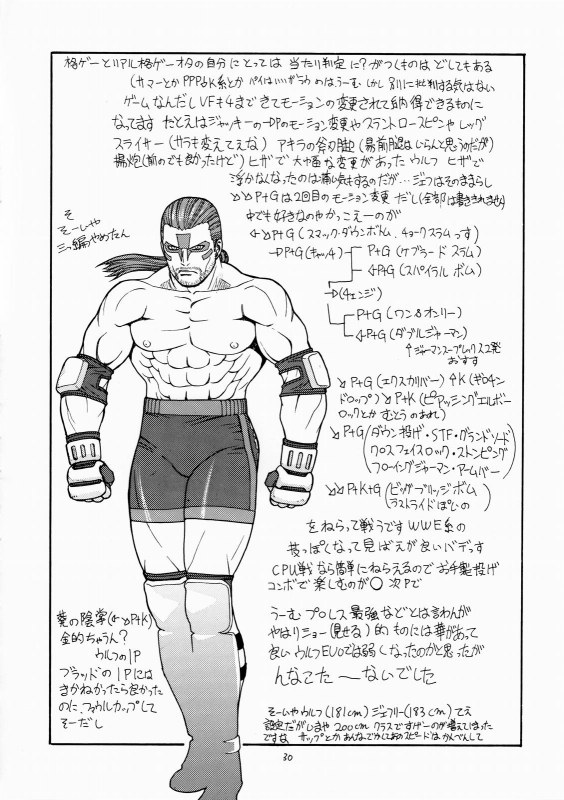 格ゲーとリアル格ゲーオタの自分にとっては 当たり判定に?がつくものは どしてもある
(サマーとか PPP→K系とか パイは うーむ しかし 別に批判する気はない
ゲームなんだし VFも4まできてモーションの変更されて納得できるものに
なってます たとえばジャッキーの→DPのモーション変更や スラントロースピンや レッグ
スライサー (サラも変えてえな) アキラの斧刃脚 (易前腿はいらんと思うのだが)
揚炮(前のでも良かったけど) ヒザで 大幅な変更があった ウルフ ヒザで
浮かなくなったのは痛い気もするのだが… ジェフはそのままらし
↘↘P+Gは2回目のモーション変更 だし(全部は書ききれませぬ)
中でも好きなのや かっこえーのが
そ
そーいや
三つ編やめたん
←↘P+G (スマック・ダウンボトム. チョークスラムっす)
→P+G (キャッチ)
P+G (ケブラードスラム)
←P+G (スパイラルボム)
→(チェンジ)
P+G (ワン&オンリー)
←P+G (ダブルジャーマン)
↑ジャーマンスープレックス2発
おすす
↘P+G (エクスカリバー) ↑K (ギロチン
ドロップ) ↘P+K (ピアッシングエルボー
ロックとか むとうの あれ)
↘P+G (ダウン投げ・STF・グランドソード
クロスフェイスロック・ストンピング
フローイングジャーマン・アームバー)
↘↘P+K+G (ビッグブリッジボム
ラストライドぽいの)
をねらって戦うです WWE系の
技っぽくなって見ばえが良いバデっす
CPU戦なら簡単にねらえるので お手製投げ
コンボで楽しむのが○ 次Pで
葵の陰掌(←↘P+K)
金的ちゃうん?
ウルフの1P
ブラッドの1Pには
きかねかったら良かった
のに、ファウルカップして
そーだし
うーむ プロレス最強などとは言わんが
やはりショー(見せる)的ものには華があって
良い ウルフEVOでは弱くなったのかと思ったが
んなこた〜ないでした
そーいやウルフ(181cm) ジェフリー(183cm)てえ
設定だが いまや 200cmクラスですげーのが増えてまった
ですな サップとか あんなでかくて あのスピードは かんべんして
30